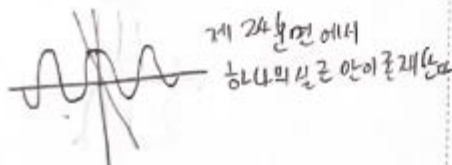 제 24분면에서
하나의 실근 만이 존재한다